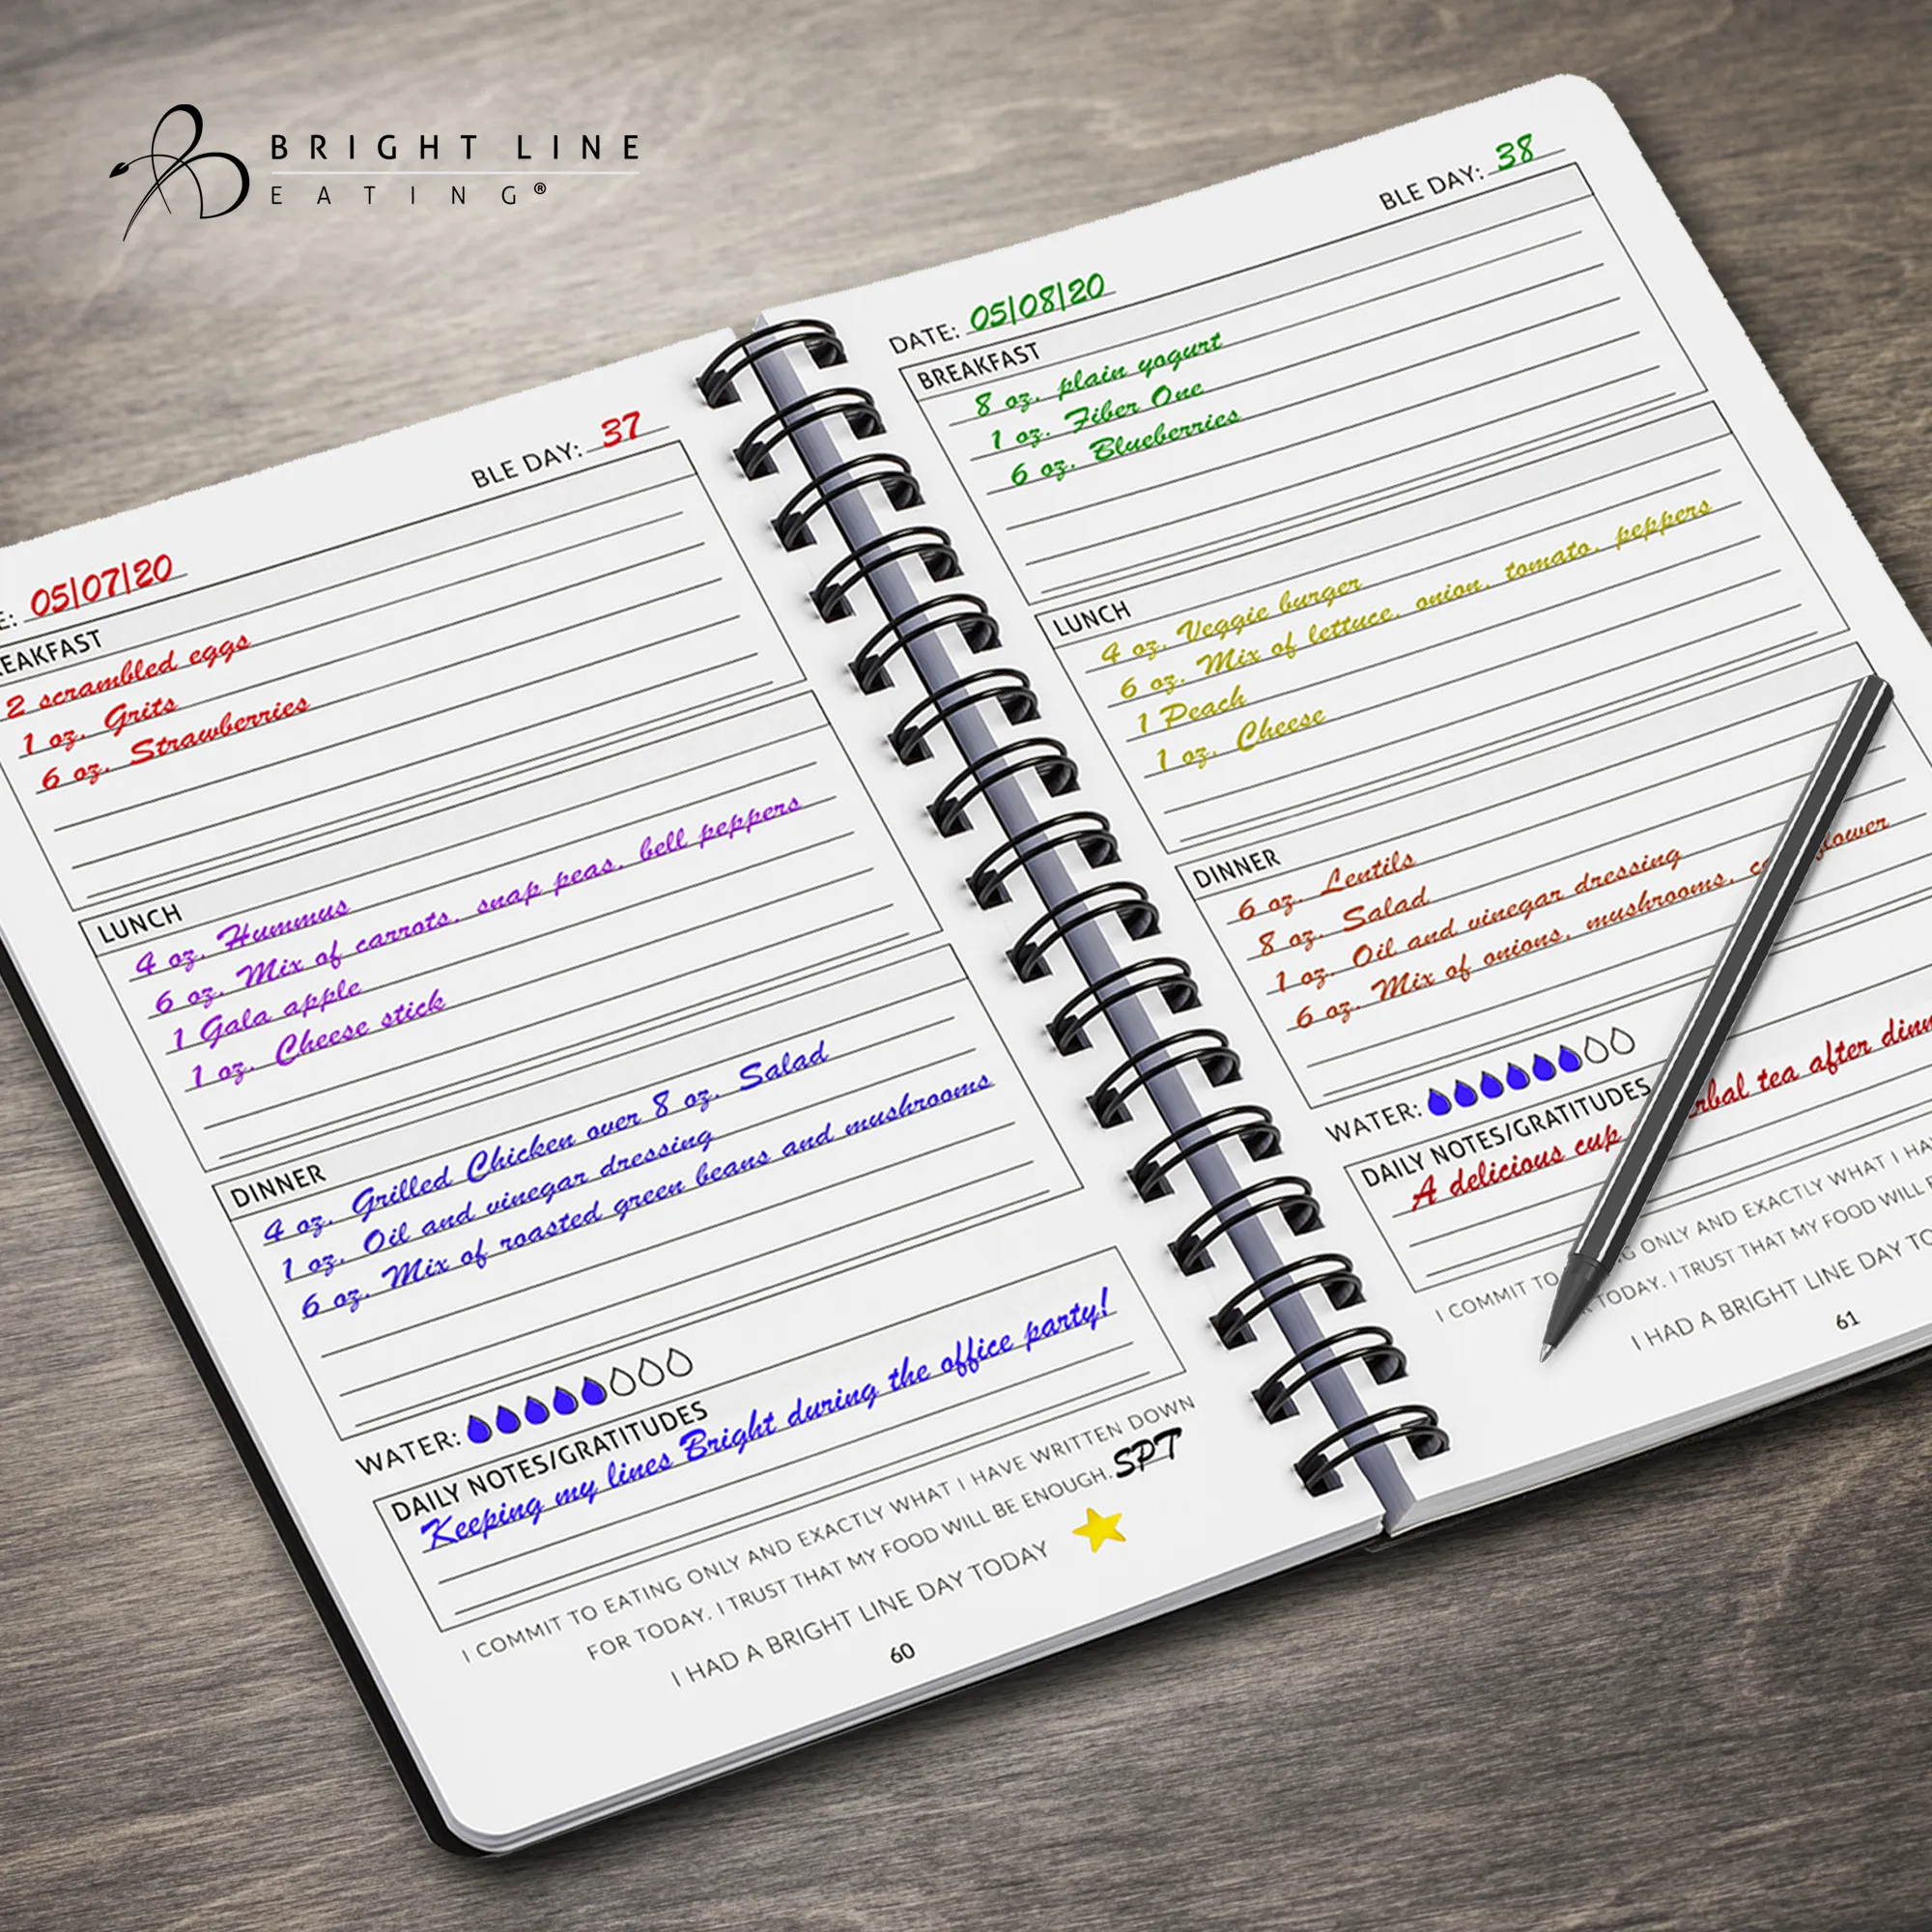 BRIGHT LINE
EATING®
BLE DAY: 37
05/07/20
2 scrambled eggs
1 oz. Grits
6 oz. Strawberries
LUNCH
4 oz. Hummus
6 oz. Mix of carrots, snap peas, bell peppers
1 Gala apple
1 oz. Cheese stick
DINNER
4 oz. Grilled Chicken over 8 oz. Salad
1 oz. Oil and vinegar dressing
6 oz. Mix of roasted green beans and mushrooms
WATER:
DAILY NOTES/GRATITUDES
Keeping my lines Bright during the office party!
I COMMIT TO EATING ONLY AND EXACTLY WHAT I HAVE WRITTEN DOWN
FOR TODAY. I TRUST THAT MY FOOD WILL BE ENOUGH. SPT
I HAD A BRIGHT LINE DAY TODAY
60
BLE DAY: 38
DATE: 05/08/20
BREAKFAST
8 oz. plain yogurt
1 oz. Fiber One
6 oz. Blueberries
LUNCH
4 oz. Veggie burger
6 oz. Mix of lettuce, onion, tomato, peppers
1 Peach
1 oz. Cheese
DINNER
6 oz. Lentils
8 oz. Salad
1 oz. Oil and vinegar dressing
6 oz. Mix of onions, mushrooms,
WATER:
DAILY NOTES/GRATITUDES
A delicious cup tea after
I COMMIT TO ONLY AND EXACTLY WHAT I
TODAY. I TRUST THAT MY FOOD WILL
I HAD A BRIGHT LINE DAY
61